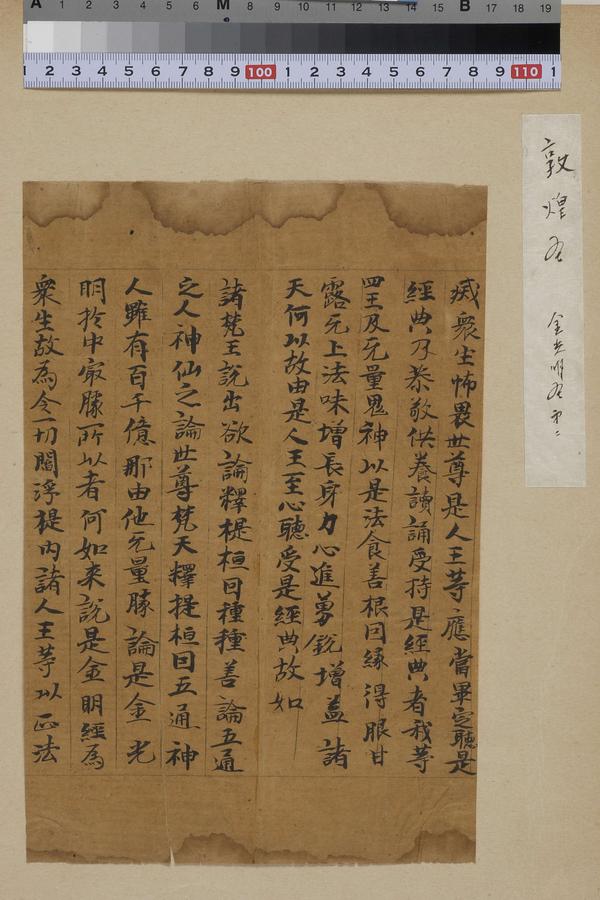 A 1 2 3 4 5 6 M 8 9 10 11 12 13 14 15 B 17 18 19
1 2 3 4 5 6 7 8 9 100 1 2 3 4 5 6 7 8 9 110 1
敦煌
金光明 第二
滅衆生怖畏世尊是人王等應當畢定聽是
經典乃恭敬供養讀誦受持是經典者我等
四王及无量鬼神以是法食善根因緣得服甘
露无上法味增長身力心進勇銳增益諸
天何以故由是人王至心聽受是經典故如
諸梵王說出欲論釋提桓因種種善論五通
之人神仙之論世尊梵天釋提桓因五通神
人雖有百千億那由他无量勝論是金光
明於中最勝所以者何如來說是金明經為
衆生故為令一切閻浮提內諸人王等以正法